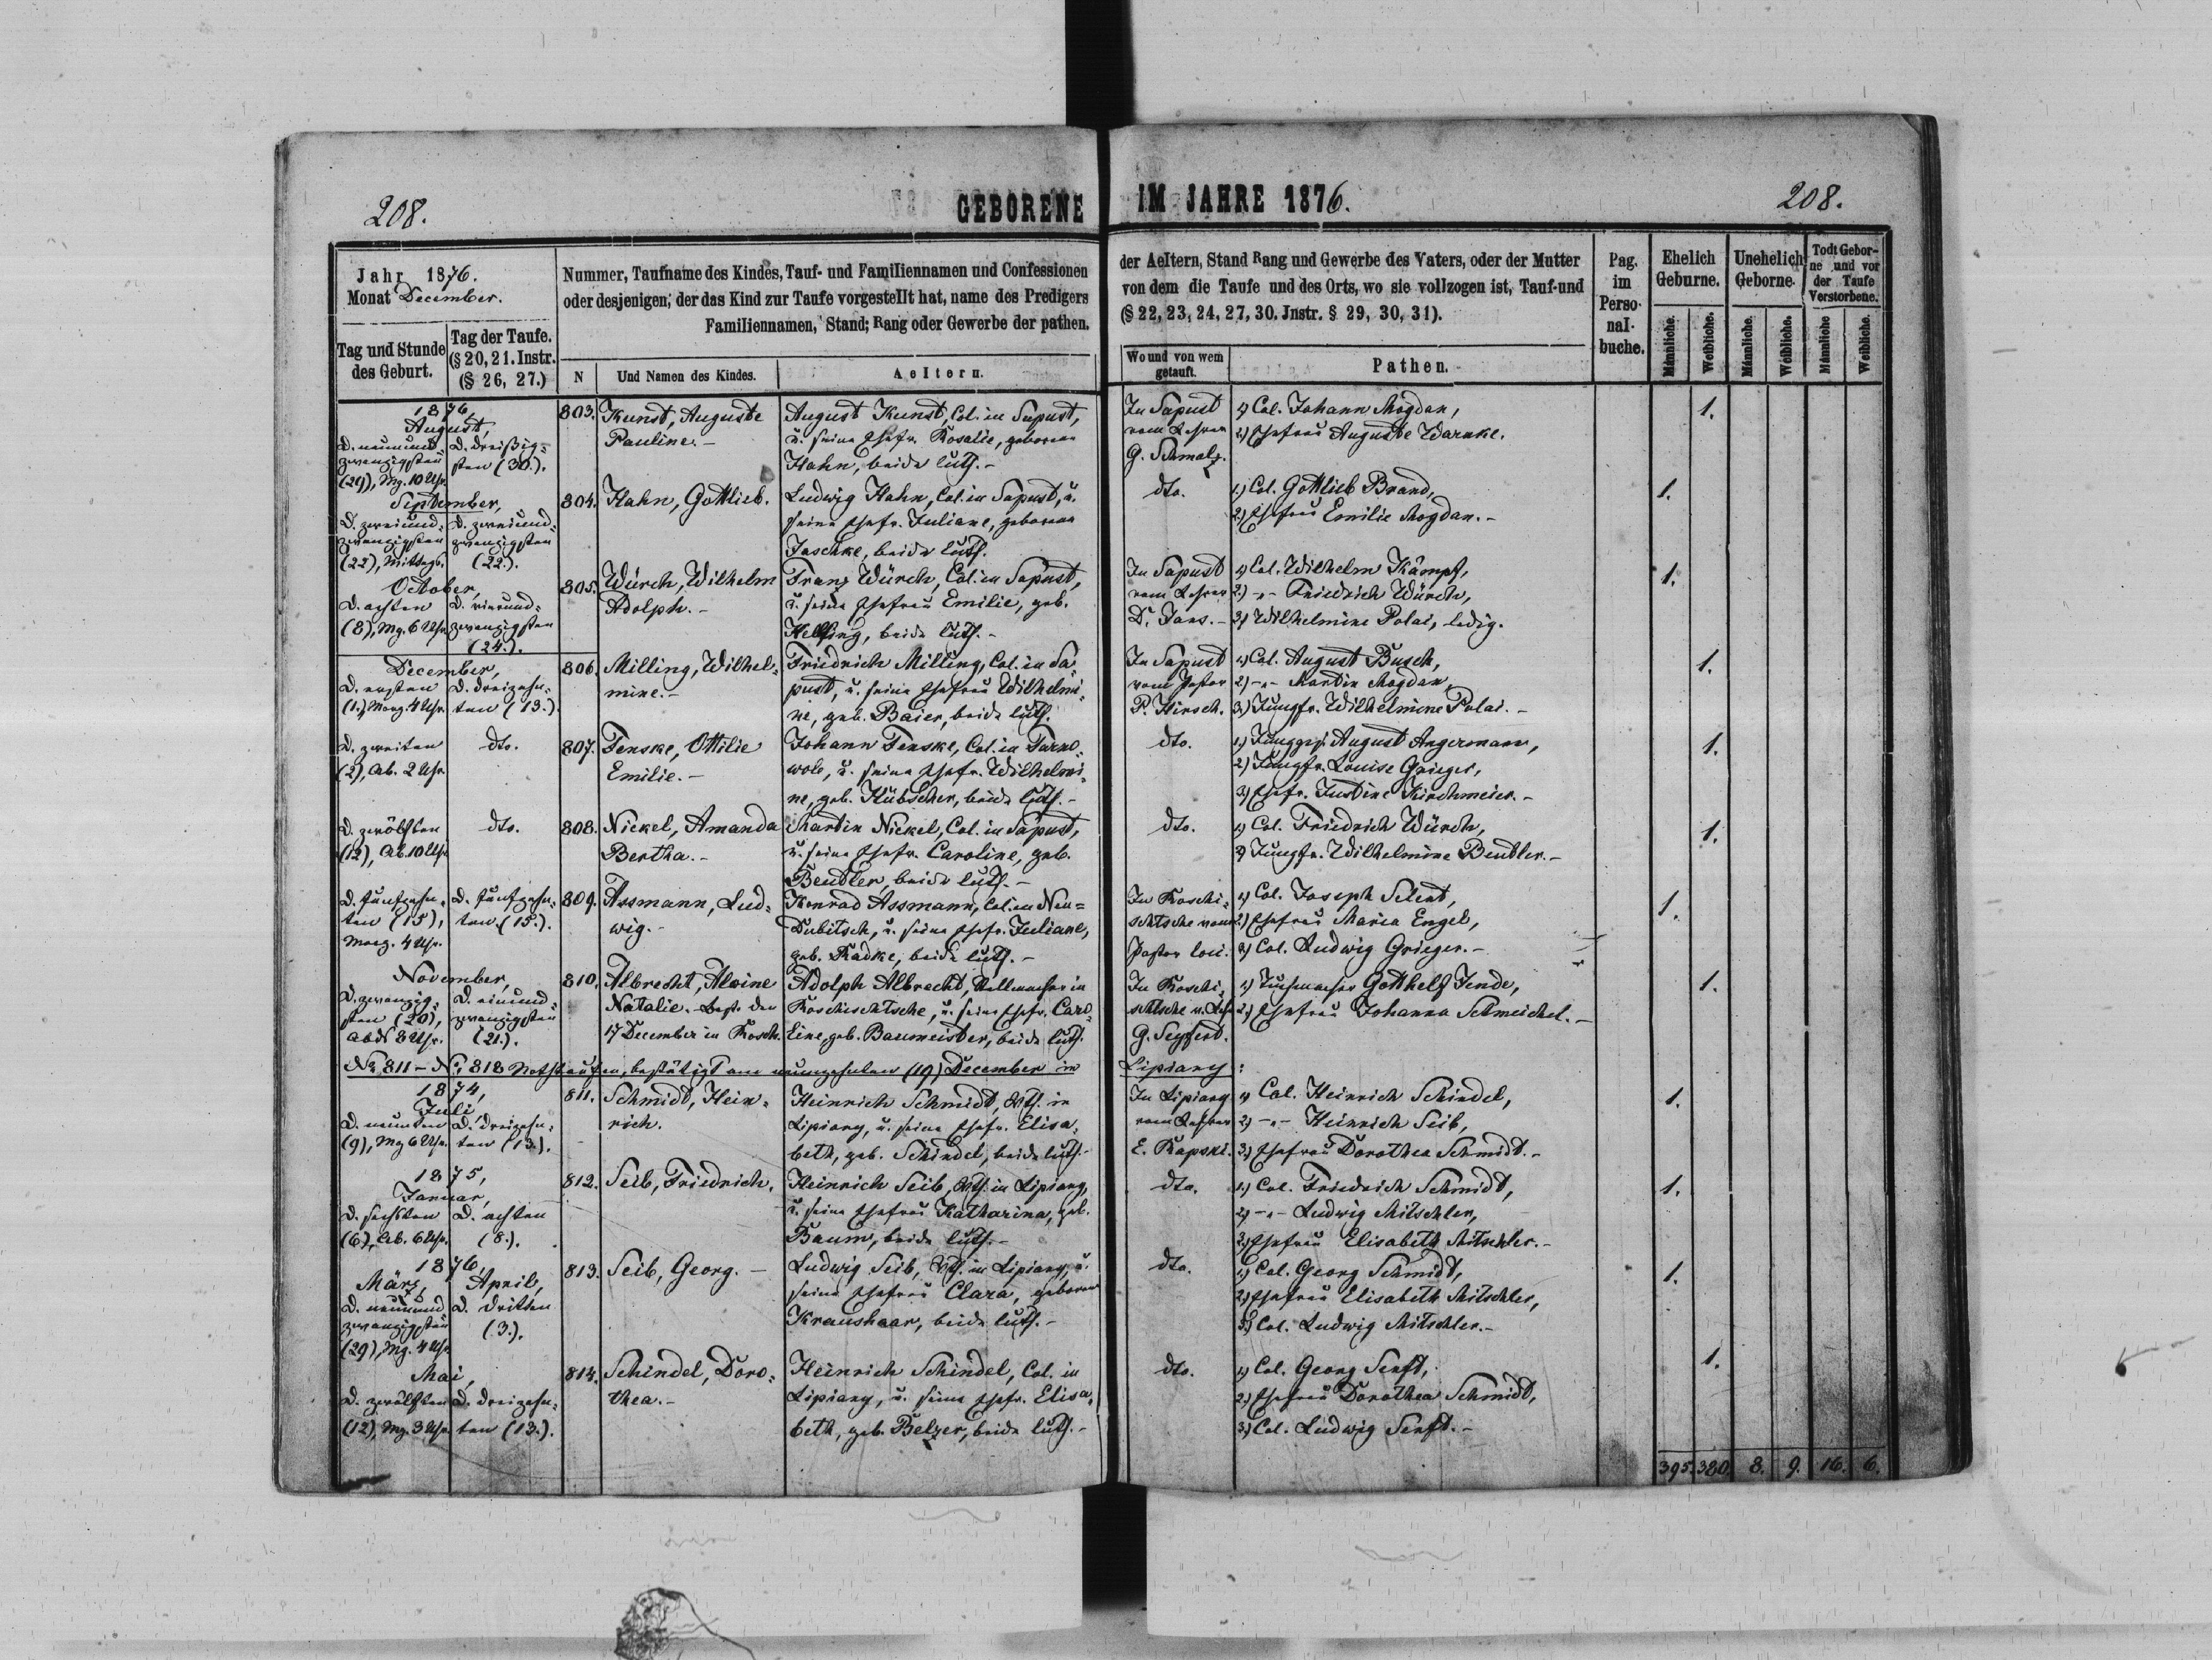 208.
GEBORENE IM JAHRE 1876.
208.
Jahr 1876.
Monat December.
Nummer, Taufname des Kindes, Tauf- und Familiennamen und Confessionen
oder desjenigen, der das Kind zur Taufe vorgestellt hat, name des Predigers
Familiennamen, Stand; Rang oder Gewerbe der pathen.
der Aeltern, Stand Rang und Gewerbe des Vaters, oder der Mutter
von dem die Taufe und des Orts, wo sie vollzogen ist, Tauf-und
(§ 22, 23, 24, 27, 30. Jnstr. § 29, 30, 31).
Pag.
im
Perso-
nal-
buche.
Ehelich
Geburne.
Unehelich
Geborne.
Todt Gebor-
ne und vor
der Taufe
Verstorbene.
Tag und Stunde
des Geburt.
Tag der Taufe.
(§ 20, 21. Instr.
(§ 26, 27.)
N
Und Namen des Kindes.
Aeltern.
Wo und von wem
getauft.
Pathen.
Männliche.
Weibliche.
Männliche.
Weibliche.
Männliche
Weibliche.
1876,
August,
D. neunund-
zwanzigsten
(29), Mg. 10 Uhr.
D. dreißig-
sten (30.).
803.
Kunst, Auguste
Pauline.-
August Kunst, Col. in Sapust,
u. seine Ehefr. Rosalie, geborene
Hahn, beide luth.-
In Sapust
vom Lehrer
G. Schmalz.
1) Col. Johann Mogdan,
2) Ehefrau Auguste Warnke.
1.
September,
D. zweiund-
zwanzigsten
(22), Mittags.
D. zweiund-
zwanzigsten
(22.).
804.
Hahn, Gottlieb.
Ludwig Hahn, Col. in Sapust, u.
seine Ehefr. Juliane, geborene
Jaschke, beide luth.
dto.
1) Col. Gottlieb Brand,
2) Ehefrau Emilie Mogdan.-
1.
October,
D. achten
(8), Mg. 6 Uhr
D. vierund-
zwanzigsten
(24.).
805.
Würch, Wilhelm
Adolph.-
Franz Würch, Col. in Sapust,
u. seine Ehefrau Emilie, geb.
Helfing, beide luth.-
In Sapust
vom Lehrer
D. Jans.-
1) Col. Wilhelm Kämpf,
2) -"- Friedrich Würch,
3) Wilhelmine Polai, ledig.
1.
December,
D. ersten
(1.), Morg. 4 Uhr.
D. dreizehn-
ten (13.).
806.
Milling, Wilhel-
mine.-
Friedrich Milling, Col. in Sa-
pust, u. seine Ehefrau Wilhelmi-
ne, geb. Baier, beide luth.
In Sapust
vom Pastor
P. Hirsch.
1) Col. August Busch,
2) -"- Martin Mogdan,
3) Jungfr. Wilhelmine Polai.-
1.
D. zweiten
(2), Ab. 2 Uhr.
dto.
807.
Fenske, Ottilie
Emilie.-
Johann Fenske, Col. in Tarno-
wole, u. seine Ehefr. Wilhelmi-
ne, geb. Hübscher, beide luth.-
dto.
1) Junggs. August Angermann,
2) Jungfr. Louise Grieger,
3) Ehefr. Justine Kirchmeier.-
1.
D. zwölften
(12), Ab. 10 Uhr
dto.
808.
Nickel, Amanda
Bertha.-
Martin Nickel, Col. in Sapust,
u. seine Ehefr. Caroline, geb.
Beudler, beide luth.-
dto.
1) Col. Friedrich Würch,
2) Jungfr. Wilhelmine Beudler.-
1.
D. fünfzehn-
ten (15),
Morg. 4 Uhr.
D. fünfzehn-
ten (15.).
809.
Assmann, Lud-
wig.-
Konrad Assmann, Col. in Neu-
Dubitsch, u. seine Ehefr. Juliane,
geb. Radke, beide luth.-
In Roschi-
schtsche vom
Pastor loci.
1) Col. Joseph Selent,
2) Ehefrau Maria Engel,
3) Col. Ludwig Grieger.-
1.
November,
D. zwanzig-
sten (20),
Abds 8 Uhr.
D. einund-
zwanzigsten
(21.).
810.
Albrecht, Alwine
Natalie.- best. den
17 December in Rosch.
Adolph Albrecht, Stellmacher in
Roschischtsche, u. seine Ehefr. Caro-
line, geb. Baumeister, beide luth.
In Roschi-
schtsche v. Lehr.
G. Seyfert.
1) Tuchmacher Gotthelf Jende,
2) Ehefrau Johanna Schmeichel.-
1.
No 811 - No 818 Nothtaufen, bestätigt am neunzehnten (19) December in Lipiany:
1874,
Juli,
D. neunten
(9), Mg 6 Uhr.
D. dreizehn-
ten (13.).
811.
Schmidt, Hein-
rich.
Heinrich Schmidt, in
Lipiany, u. seine Ehefr. Elisa-
beth, geb. Schindel, beide luth.-
In Lipiany
vom Lehrer
E. Rapski.
1) Col. Heinrich Schindel,
2) -"- Heinrich Seib,
3) Ehefrau Dorothea Schmidt.-
1.
1875,
Januar,
D. sechsten
(6), Ab. 6 Uhr.
D. achten
(8.).
812.
Seib, Friedrich.
Heinrich Seib, in Lipiany,
u. seine Ehefrau Katharina, geb.
Baum, beide luth.-
dto.
1) Col. Friedrich Schmidt,
2) -"- Ludwig Mitschler,
3) Ehefrau Elisabeth Mitschler.-
1.
1876,
März,
April,
D. neunund-
zwanzigsten
(29), Mg. 4 Uhr
D. dritten
(3.).
813.
Seib, Georg.-
Ludwig Seib, in Lipiany, u.
seine Ehefrau Clara, geborene
Kraushaar, beide luth.-
dto.
1) Col. Georg Schmidt,
2) Ehefrau Elisabeth Mitschler,
3) Col. Ludwig Mitschler.-
1.
Mai,
D. zwölften
(12), Mg. 3 Uhr
D. dreizehn-
ten (13.).
814.
Schindel, Doro-
thea.-
Heinrich Schindel, Col. in
Lipiany, u. seine Ehefr. Elisa-
beth, geb. Belzer, beide luth.-
dto.
1) Col. Georg Senft,
2) Ehefrau Dorothea Schmidt,
3) Col. Ludwig Senft.-
1.
395. 380. 8. 9. 16. 6.